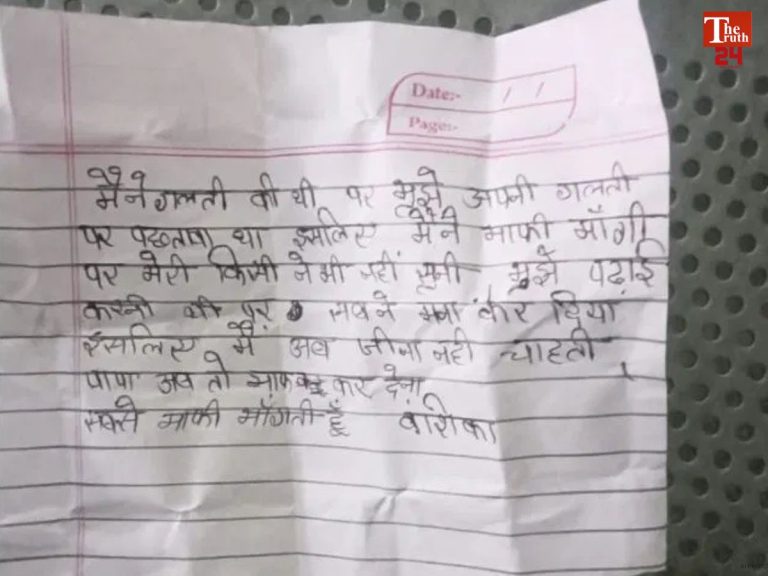 The Truth 24
Date:- / /
Page:-
मैंने गलती की थी पर मुझे अपनी गलती
पर पछतावा था इसलिए मैंने माफी माँगी
पर मेरी किसी ने भी नहीं सुनी मुझे पढ़ाई
करनी थी पर सबने मना कर दिया
इसलिए मैं अब जीना नही चाहती
पापा अब तो माफ कर देना
सबसे माफी माँगती हूँ वंशिका